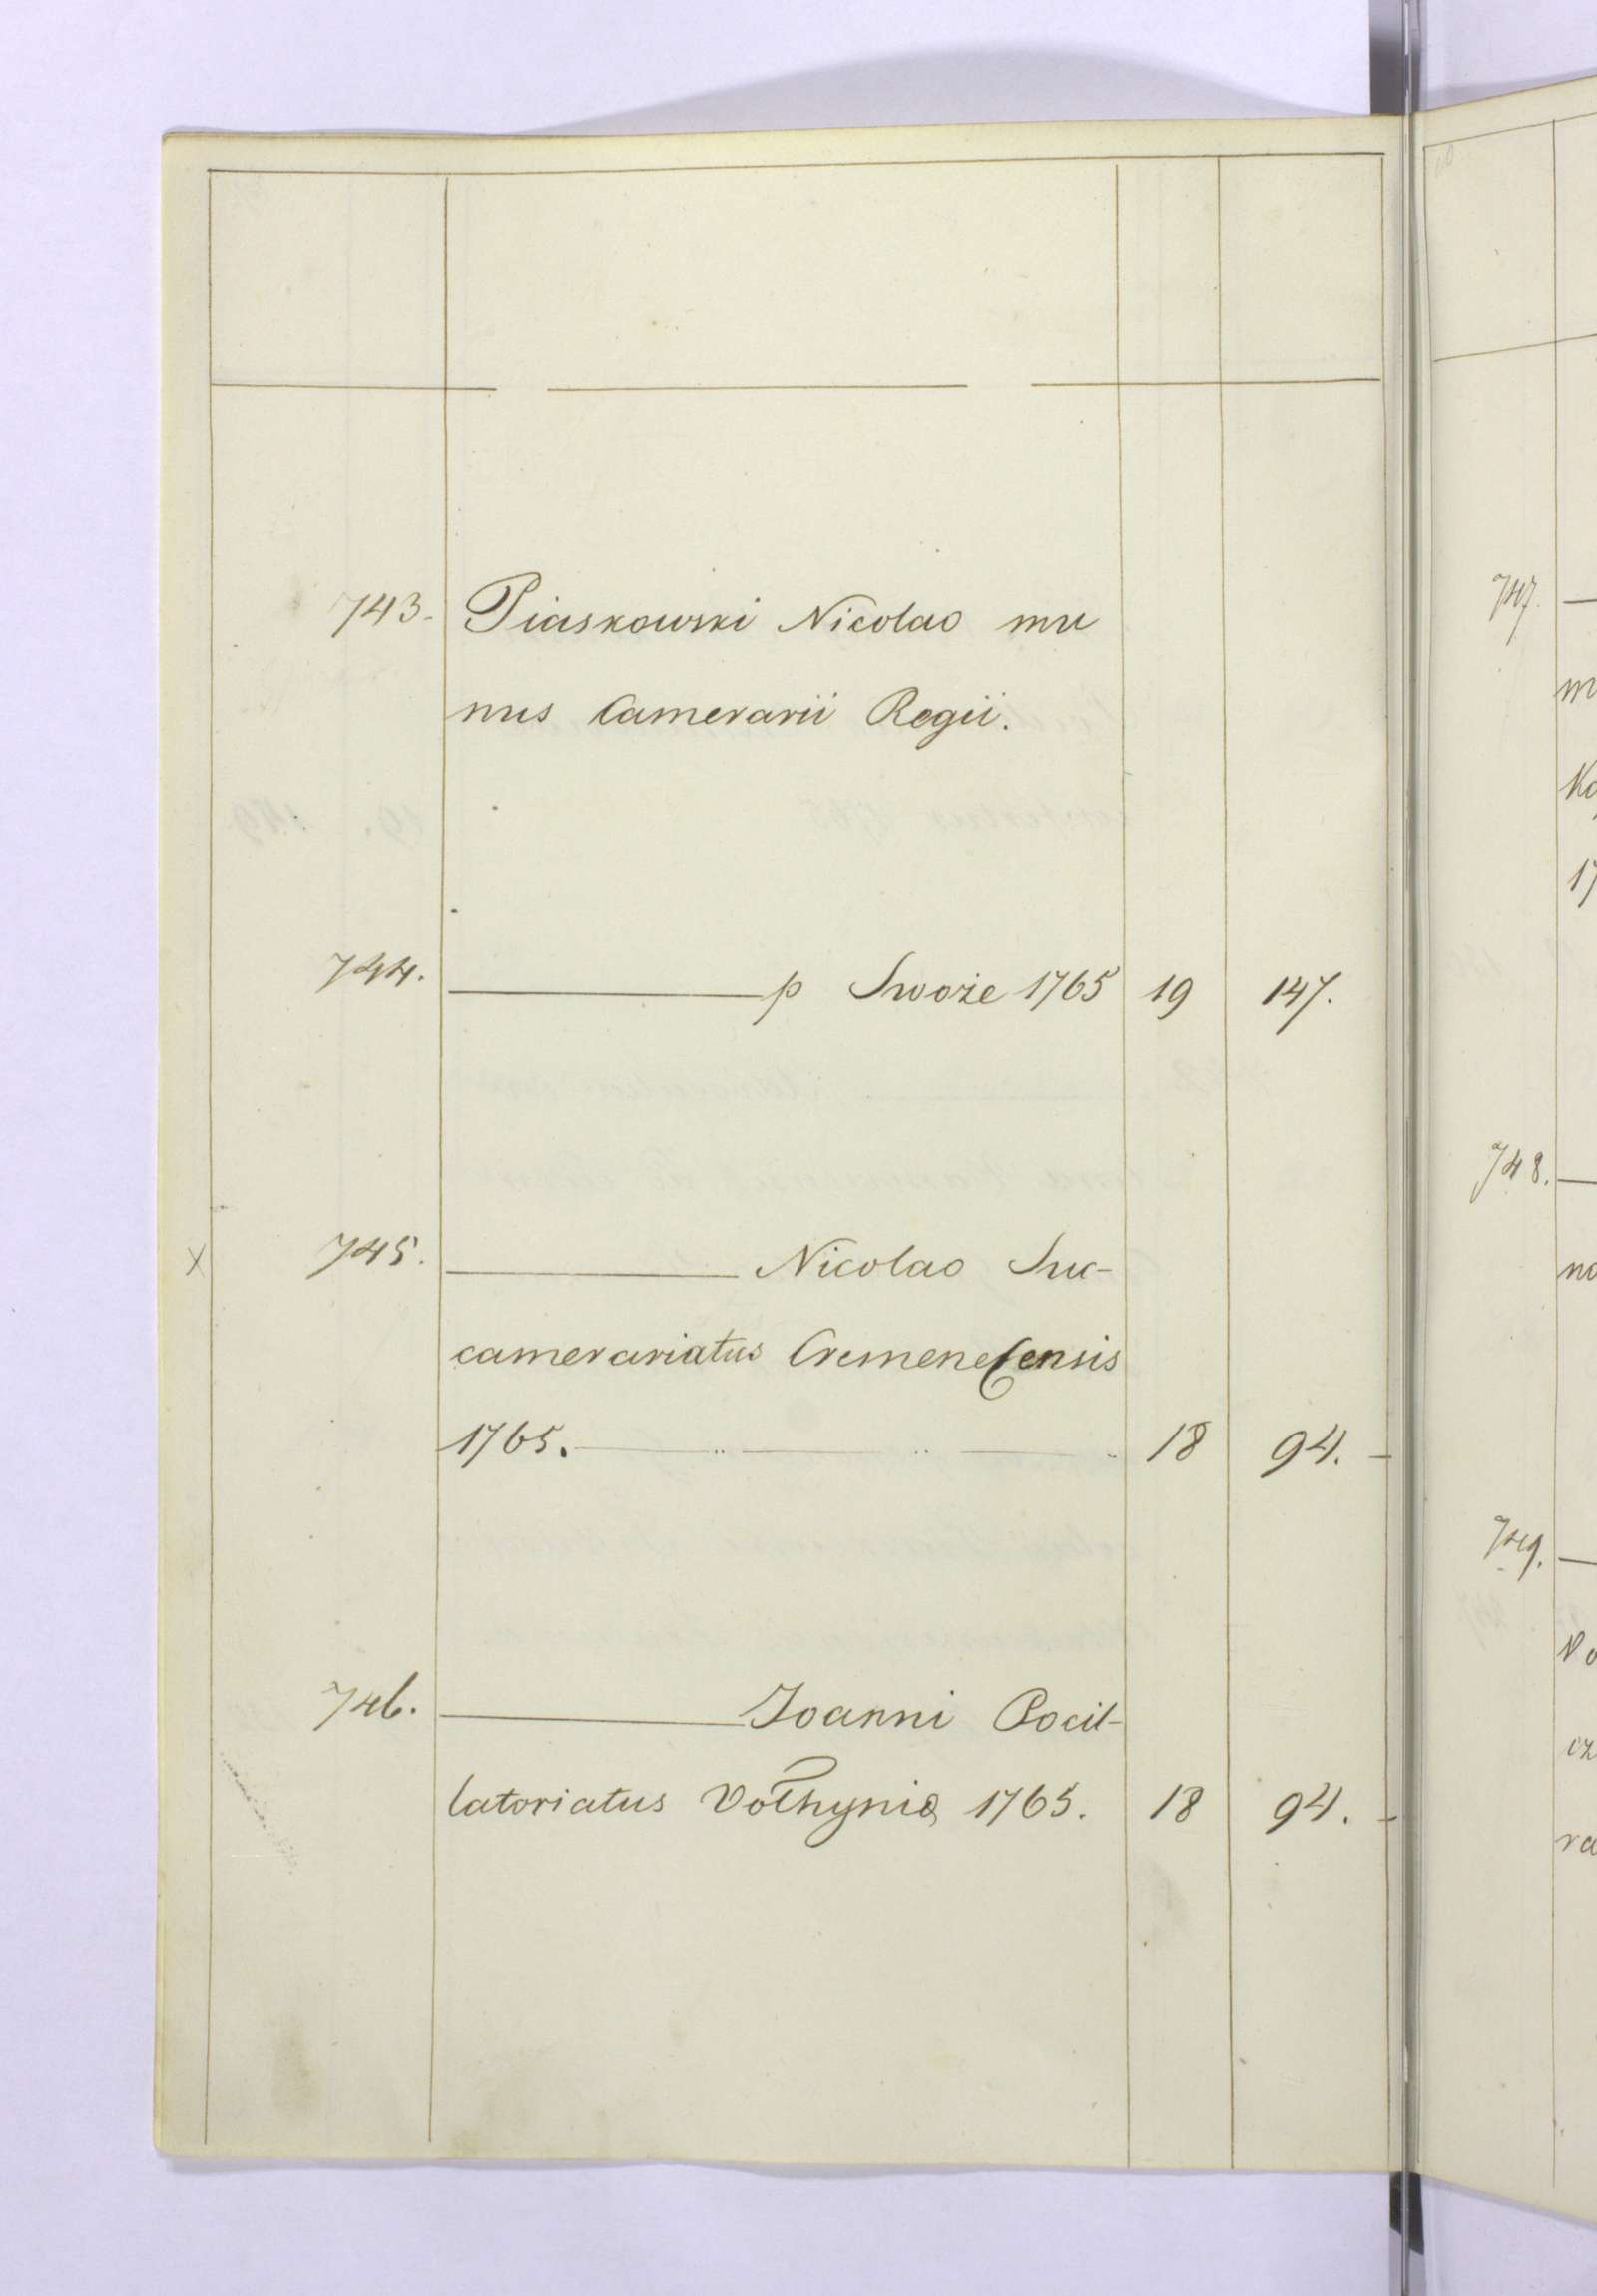 743. Piaskowski Nicolao mu
nus Camerarii Regii.
744. ——— p Swoże 1765 19 147.
X 745. ——— Nicolao Suc-
camerariatus Cremenecensis
1765. ——— 18 94. -
746. ——— Joanni Pocil-
latoriatus Volhyniæ 1765. 18 94. -
747. —
m
Ko
17
748. —
no
749. —
Vo
cz
ra